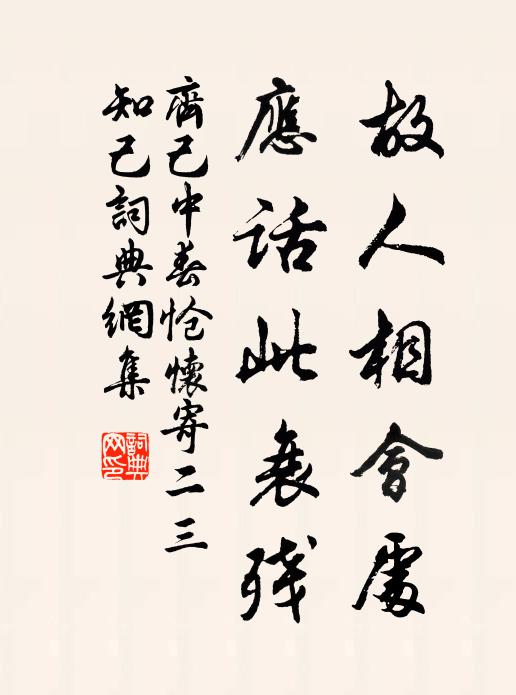 故人相會處
應話此衰殘
齊己中春愴懷寄二三
知己詞典網集
詞典網印